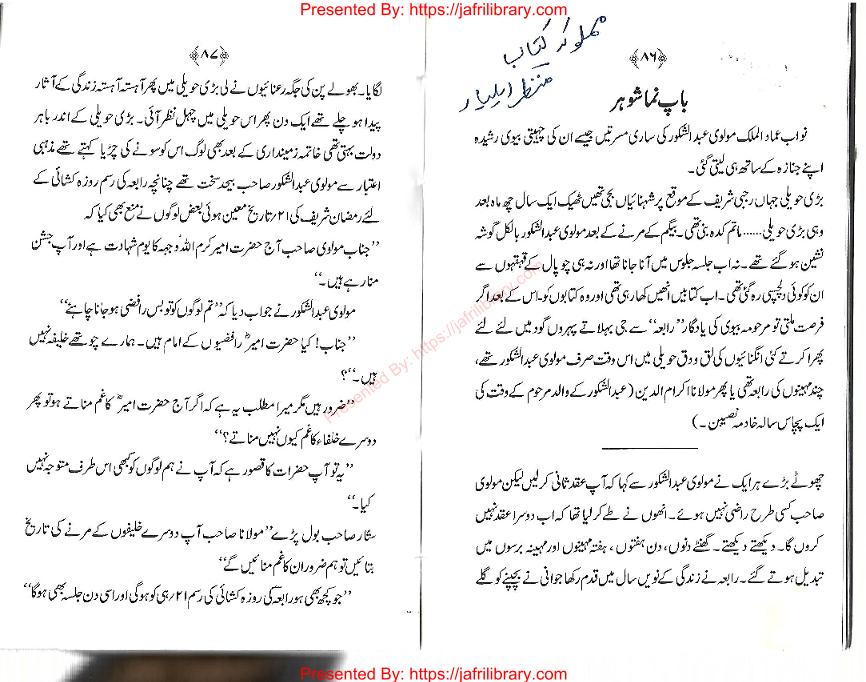 Presented By: https://jafrilibrary.com
﴿۸۶﴾
باپ نما شوہر
نواب عماد الملک مولوی عبدالشکور کی ساری مسرتیں جیسے ان کی چہیتی بیوی رشیدہ
اپنے جنازہ کے ساتھ ہی لیتی گئی۔
بڑی حویلی جہاں رجبی شریف کے موقع پر شہنائیاں بجی تھیں ٹھیک ایک سال چھ ماہ بعد
وہی بڑی حویلی...... ماتم کدہ بنی تھی۔ بیگم کے مرنے کے بعد مولوی عبدالشکور بالکل گوشہ
نشین ہو گئے تھے۔ نہ اب جلسہ جلوس میں آنا جانا تھا اور نہ ہی چوپال کے قہقہوں سے
ان کو کوئی دلچسپی رہ گئی تھی۔ اب کتابیں انھیں کھا رہی تھی اور وہ کتابوں کو۔ اس کے بعد اگر
فرصت ملتی تو مرحومہ بیوی کی یادگار ”رابعہ“ سے جی بہلاتے پہروں گود میں لئے لئے
پھرا کرتے کئی انگنائیوں کی لق و دق حویلی میں اس وقت صرف مولوی عبدالشکور تھے،
چند مہینوں کی رابعہ تھی یا پھر مولانا اکرام الدین (عبدالشکور کے والد مرحوم کے وقت کی
ایک پچاس سالہ خادمہ نصیبن۔)
چھوٹے بڑے ہر ایک نے مولوی عبدالشکور سے کہا کہ آپ عقد ثانی کر لیں لیکن مولوی
صاحب کسی طرح راضی نہیں ہوئے۔ انھوں نے طے کر لیا تھا کہ اب دوسرا عقد نہیں
کروں گا۔ دیکھتے دیکھتے۔ گھنٹے دنوں، دن ہفتوں، ہفتہ مہینوں اور مہینہ برسوں میں
تبدیل ہوتے گئے۔ رابعہ نے زندگی کے نویں سال میں قدم رکھا جوانی نے بچپنے کو گلے
﴿۸۷﴾
لگایا۔ بھولے پن کی جگہ رعنائیوں نے لی بڑی حویلی میں پھر آہستہ آہستہ زندگی کے آثار
پیدا ہو چلے تھے ایک دن پھر اس حویلی میں چہل نظر آئی۔ بڑی حویلی کے اندر باہر
دولت بہتی تھی خاتمہ زمینداری کے بعد بھی لوگ اس کو سونے کی چڑیا کہتے تھے مذہبی
اعتبار سے مولوی عبدالشکور صاحب بیحد سخت تھے چنانچہ رابعہ کی رسم روزہ کشائی کے
لئے رمضان شریف کی ۲۱؍ تاریخ معین ہوئی بعض لوگوں نے منع بھی کیا کہ
”جناب مولوی صاحب آج حضرت امیر کرم اللہ وجہہ کا یوم شہادت ہے اور آپ جشن
منا رہے ہیں۔“
مولوی عبدالشکور نے جواب دیا کہ ”تم لوگوں کو تو بس رافضی ہو جانا چاہئے“
”جناب! کیا حضرت امیرؓ رافضیوں کے امام ہیں۔ ہمارے چوتھے خلیفہ نہیں
ہیں۔“؟
”ضرور ہیں مگر میرا مطلب یہ ہے کہ اگر آج حضرت امیرؓ کا غم مناتے ہو تو پھر
دوسرے خلفاء کا غم کیوں نہیں مناتے؟“
”یہ تو آپ حضرات کا قصور ہے کہ آپ نے ہم لوگوں کو کبھی اس طرف متوجہ نہیں
کیا۔“
ستّار صاحب بول پڑے ”مولانا صاحب آپ دوسرے خلیفوں کے مرنے کی تاریخ
بتائیں تو ہم ضرور ان کا غم منائیں گے“
”جو کچھ بھی ہو رابعہ کی روزہ کشائی کی رسم ۲۱؍ ہی کو ہوگی اور اسی دن جلسہ بھی ہوگا“
Presented By: https://jafrilibrary.com
Presented By: https://jafrilibrary.com